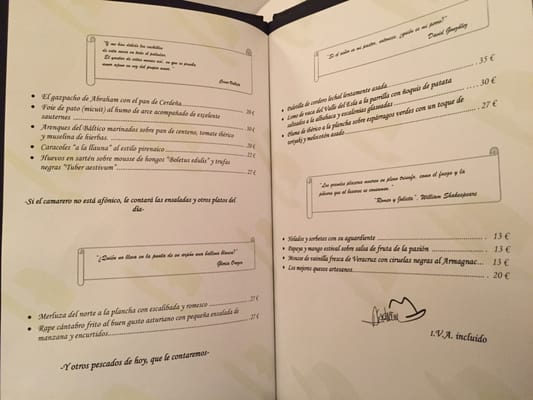 "Y me han dolido los cuchillos
de esta mesa en todo el paladar.
El quejido de estas mesas así, en que se prueba
amor ajeno en vez del propio amor."
César Vallejo
• El gazpacho de Abraham con el pan de Cerdeña
• Foie de pato (micuit) al humo de arce acompañado de excelente
sauternes 30 €
• Arenques del Báltico marinados sobre pan de centeno, tomate ibérico
y muselina de hierbas. 20 €
• Caracoles "a la llauna" al estilo pirenaico 22 €
• Huevos en sartén sobre mousse de hongos "Boletus edulis" y trufas
negras "Tuber aestivum" 27 €
-Si el camarero no está afónico, le contará las ensaladas y otros platos del
día-
"¿Quién no lleva en la punta de su arpón una ballena blanca?"
Gloria
• Merluza del norte a la plancha con escalibada y romesco 27 €
• Rape cántabro frito al buen gusto asturiano con pequeña ensalada de 27 €
manzana y encurtidos
-Y otros pescados de hoy, que le contaremos-
"Si el señor es mi pastor, entonces, ¿quién es mi perro?"
David González
• Paletilla de cordero lechal lentamente asada 35 €
• Lomo de vaca del Valle del Esla a la parrilla con ñoquis de patata
salteados a la albahaca y escalonias glaseadas 30 €
• Pluma de ibérico a la plancha sobre espárragos verdes con un toque de
teriyaki y melocotón asado 27 €
"Los grandes placeres mueren en pleno triunfo, como el fuego y la
pólvora que al besarse se consumen."
"Romeo y Julieta". William Shakespeare
• Helados y sorbetes con su aguardiente 13 €
• Papaya y mango estival sobre salsa de fruta de la pasión 13 €
• Mousse de vainilla fresca de Veracruz con ciruelas negras al Armagnac... 13 €
• Los mejores quesos artesanos 20 €
I.V.A. incluido